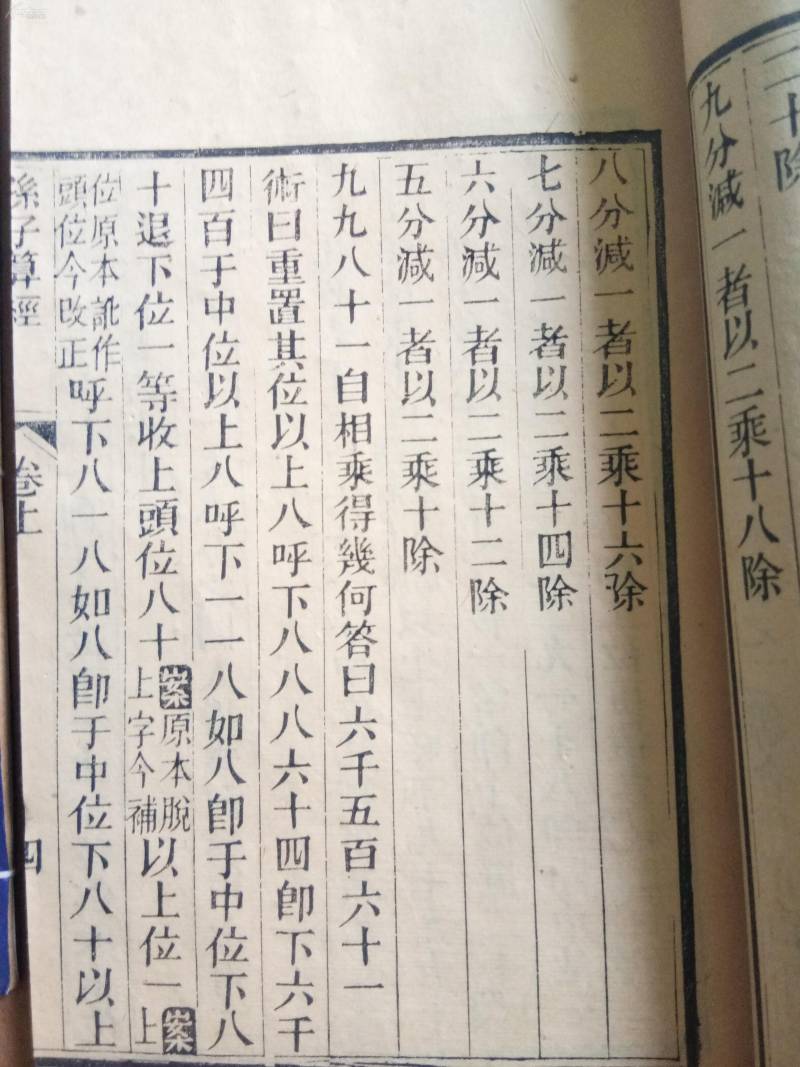 二十除
九分減一者以二乘十八除
八分減一者以二乘十六除
七分減一者以二乘十四除
六分減一者以二乘十二除
五分減一者以二乘十除
九九八十一自相乘得幾何答曰六千五百六十一
術曰重置其位以上八呼下八八八六十四卽下六千
四百于中位以上八呼下一一八如八卽于中位下八
十退下位一等收上頭位八十案原本脫上字今補以上位一上案
位原本訛作頭位今改正呼下八一八如八卽于中位下八十以上
孫子算經 卷上 四